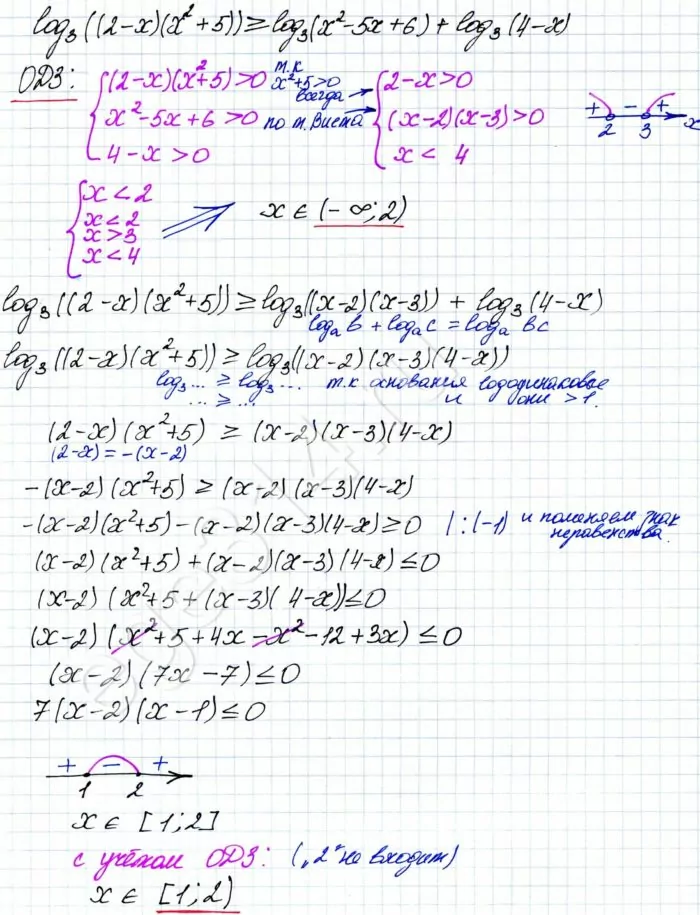 log₃((2-x)(x²+5)) ≥ log₃(x²-5x+6) + log₃(4-x)
ОДЗ: { (2-x)(x²+5)>0 т.к x²+5>0 всегда → { 2-x>0
x²-5x+6>0 по т. Виета → (x-2)(x-3)>0
4-x>0 x< 4
+ - + 2 3 x
{ x<2
x<2
x>3
x<4
⇒ x∈(-∞;2)
log₃((2-x)(x²+5)) ≥ log₃((x-2)(x-3)) + log₃(4-x)
logₐb + logₐc = logₐ bc
log₃((2-x)(x²+5)) ≥ log₃((x-2)(x-3)(4-x))
log₃... ≥ log₃... т.к основания
... ≥ ... и они >1.
(2-x)(x²+5) ≥ (x-2)(x-3)(4-x)
(2-x)=-(x-2)
-(x-2)(x²+5) ≥ (x-2)(x-3)(4-x)
-(x-2)(x²+5)-(x-2)(x-3)(4-x)≥0 |:(-1) и поменяем знак
неравенства.
(x-2)(x²+5)+(x-2)(x-3)(4-x)≤0
(x-2)(x²+5+(x-3)(4-x))≤0
(x-2)(x²+5+4x-x²-12+3x)≤0
(x-2)(7x-7)≤0
7(x-2)(x-1)≤0
+ - +
1 2
x∈ [1;2]
с учётом ОДЗ: („2" не входит)
x∈ [1;2)